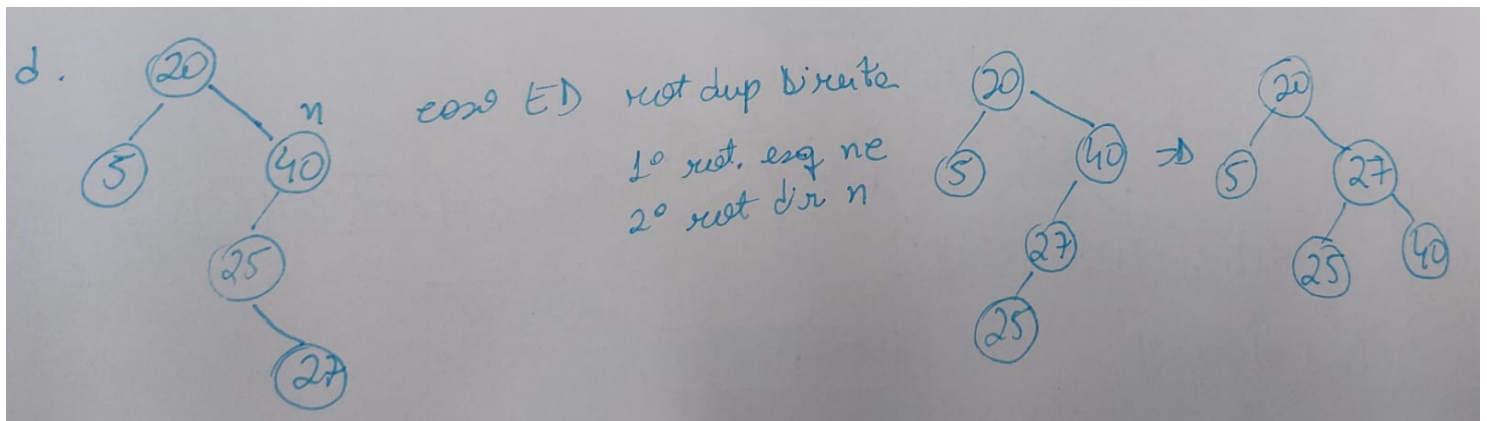 d.
20
5
n
40
25
27
caso ED rot dup Direita
1º rot. esq ne
2º rot dir n
20
5
40
27
25
⇒
20
5
27
25
40